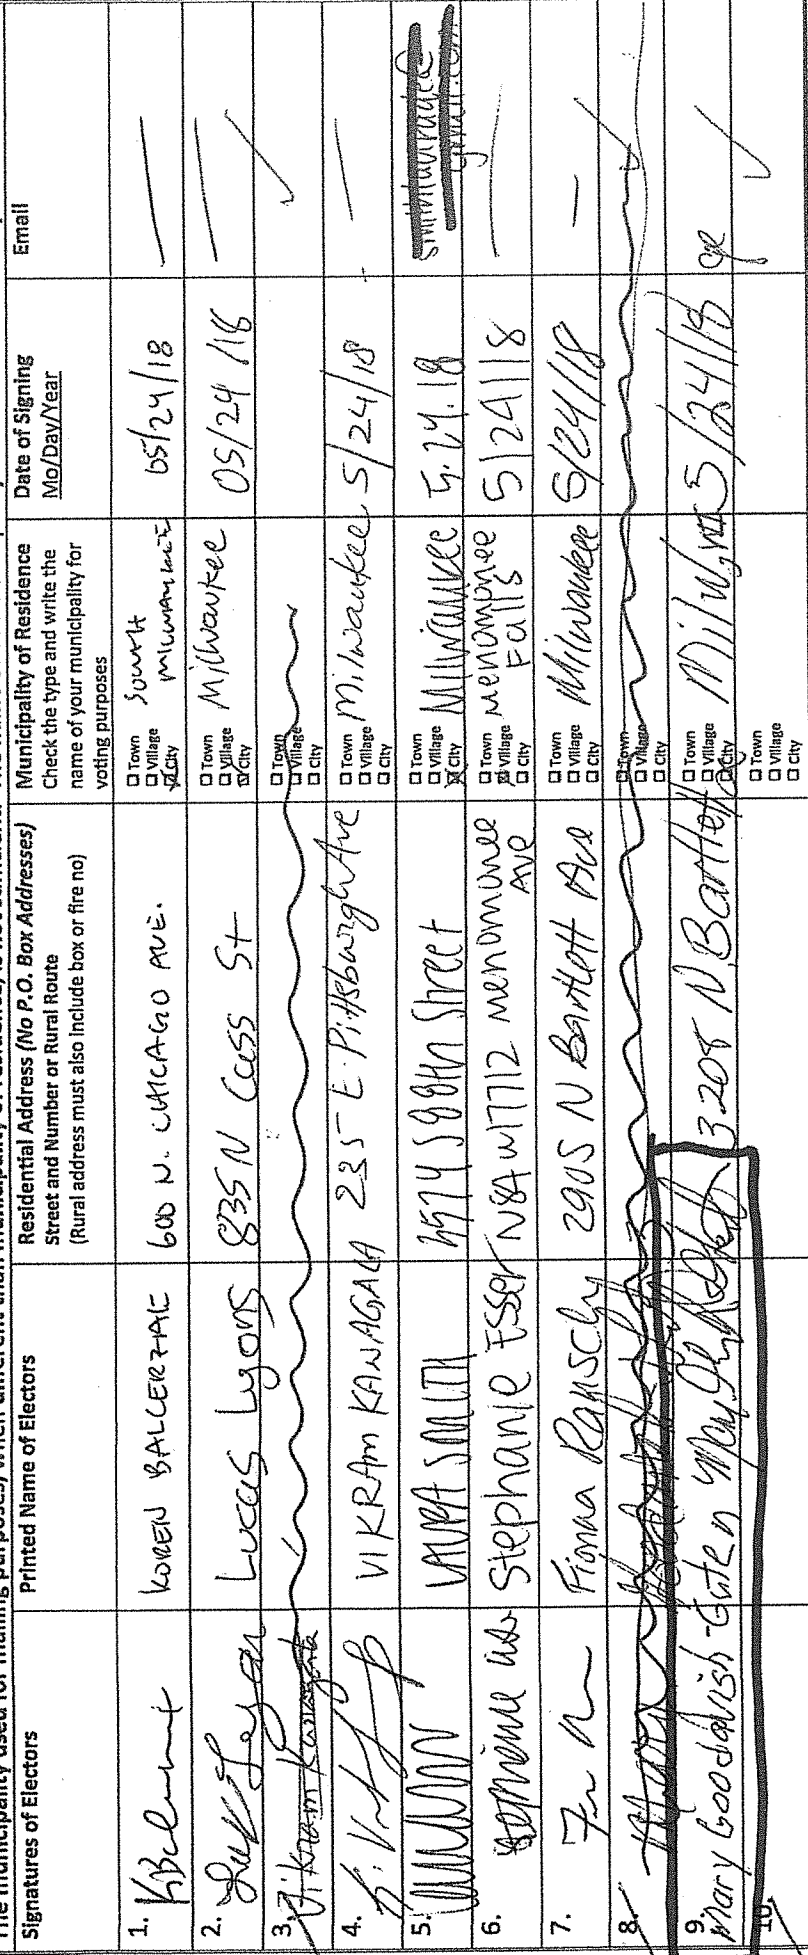 The municipality used for mailing purposes, when different than municipality of residence, is not sufficient.
Signatures of Electors
Printed Name of Electors
Residential Address (No P.O. Box Addresses)
Street and Number or Rural Route
(Rural address must also include box or fire no)
Municipality of Residence
Check the type and write the
name of your municipality for
voting purposes
Date of Signing
Mo/Day/Year
Email
1. KOREN BALCERZAK 600 N. CHICAGO AVE. □ Town □ Village □ City SOUTH MILWAUKEE 05/24/18
2. Lucas Lyons 835 N Cass St □ Town □ Village □ City Milwaukee 05/24/18
3. Vikram □ Town □ Village □ City
4. VIKRAM KANAGALA 235 E. Pittsburgh Ave □ Town □ Village □ City Milwaukee 5/24/18
5. LAURA SMITH S 88th Street □ Town □ Village □ City Milwaukee 5.24.18
6. Stephanie Esser N84 W17712 Menomonee Ave □ Town □ Village □ City Menomonee Falls 5/24/18
7. Fionna 2905 N Bartlett Ave □ Town □ Village □ City Milwaukee 5/24/18
8. □ Town □ Village □ City
9. Mary 3208 N. Bartlett □ Town □ Village □ City 5/24/18
10. □ Town □ Village □ City